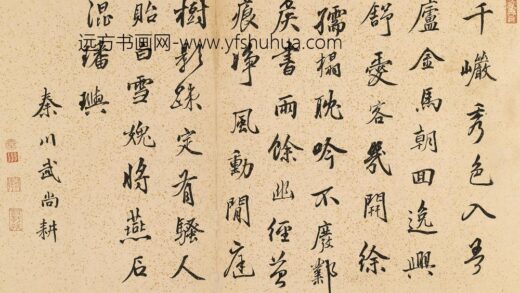 远方书画网-www.yfshuhua.com
千巗秀色入吾
廬金馬朝回逸興
舒愛客幾開徐
孺榻耽吟不廢鄴
侯書雨餘幽徑苔
痕淨風動閒庭
樹影踈定有騷人
貽白雪媿將燕石
混璠璵
秦川武尚耕